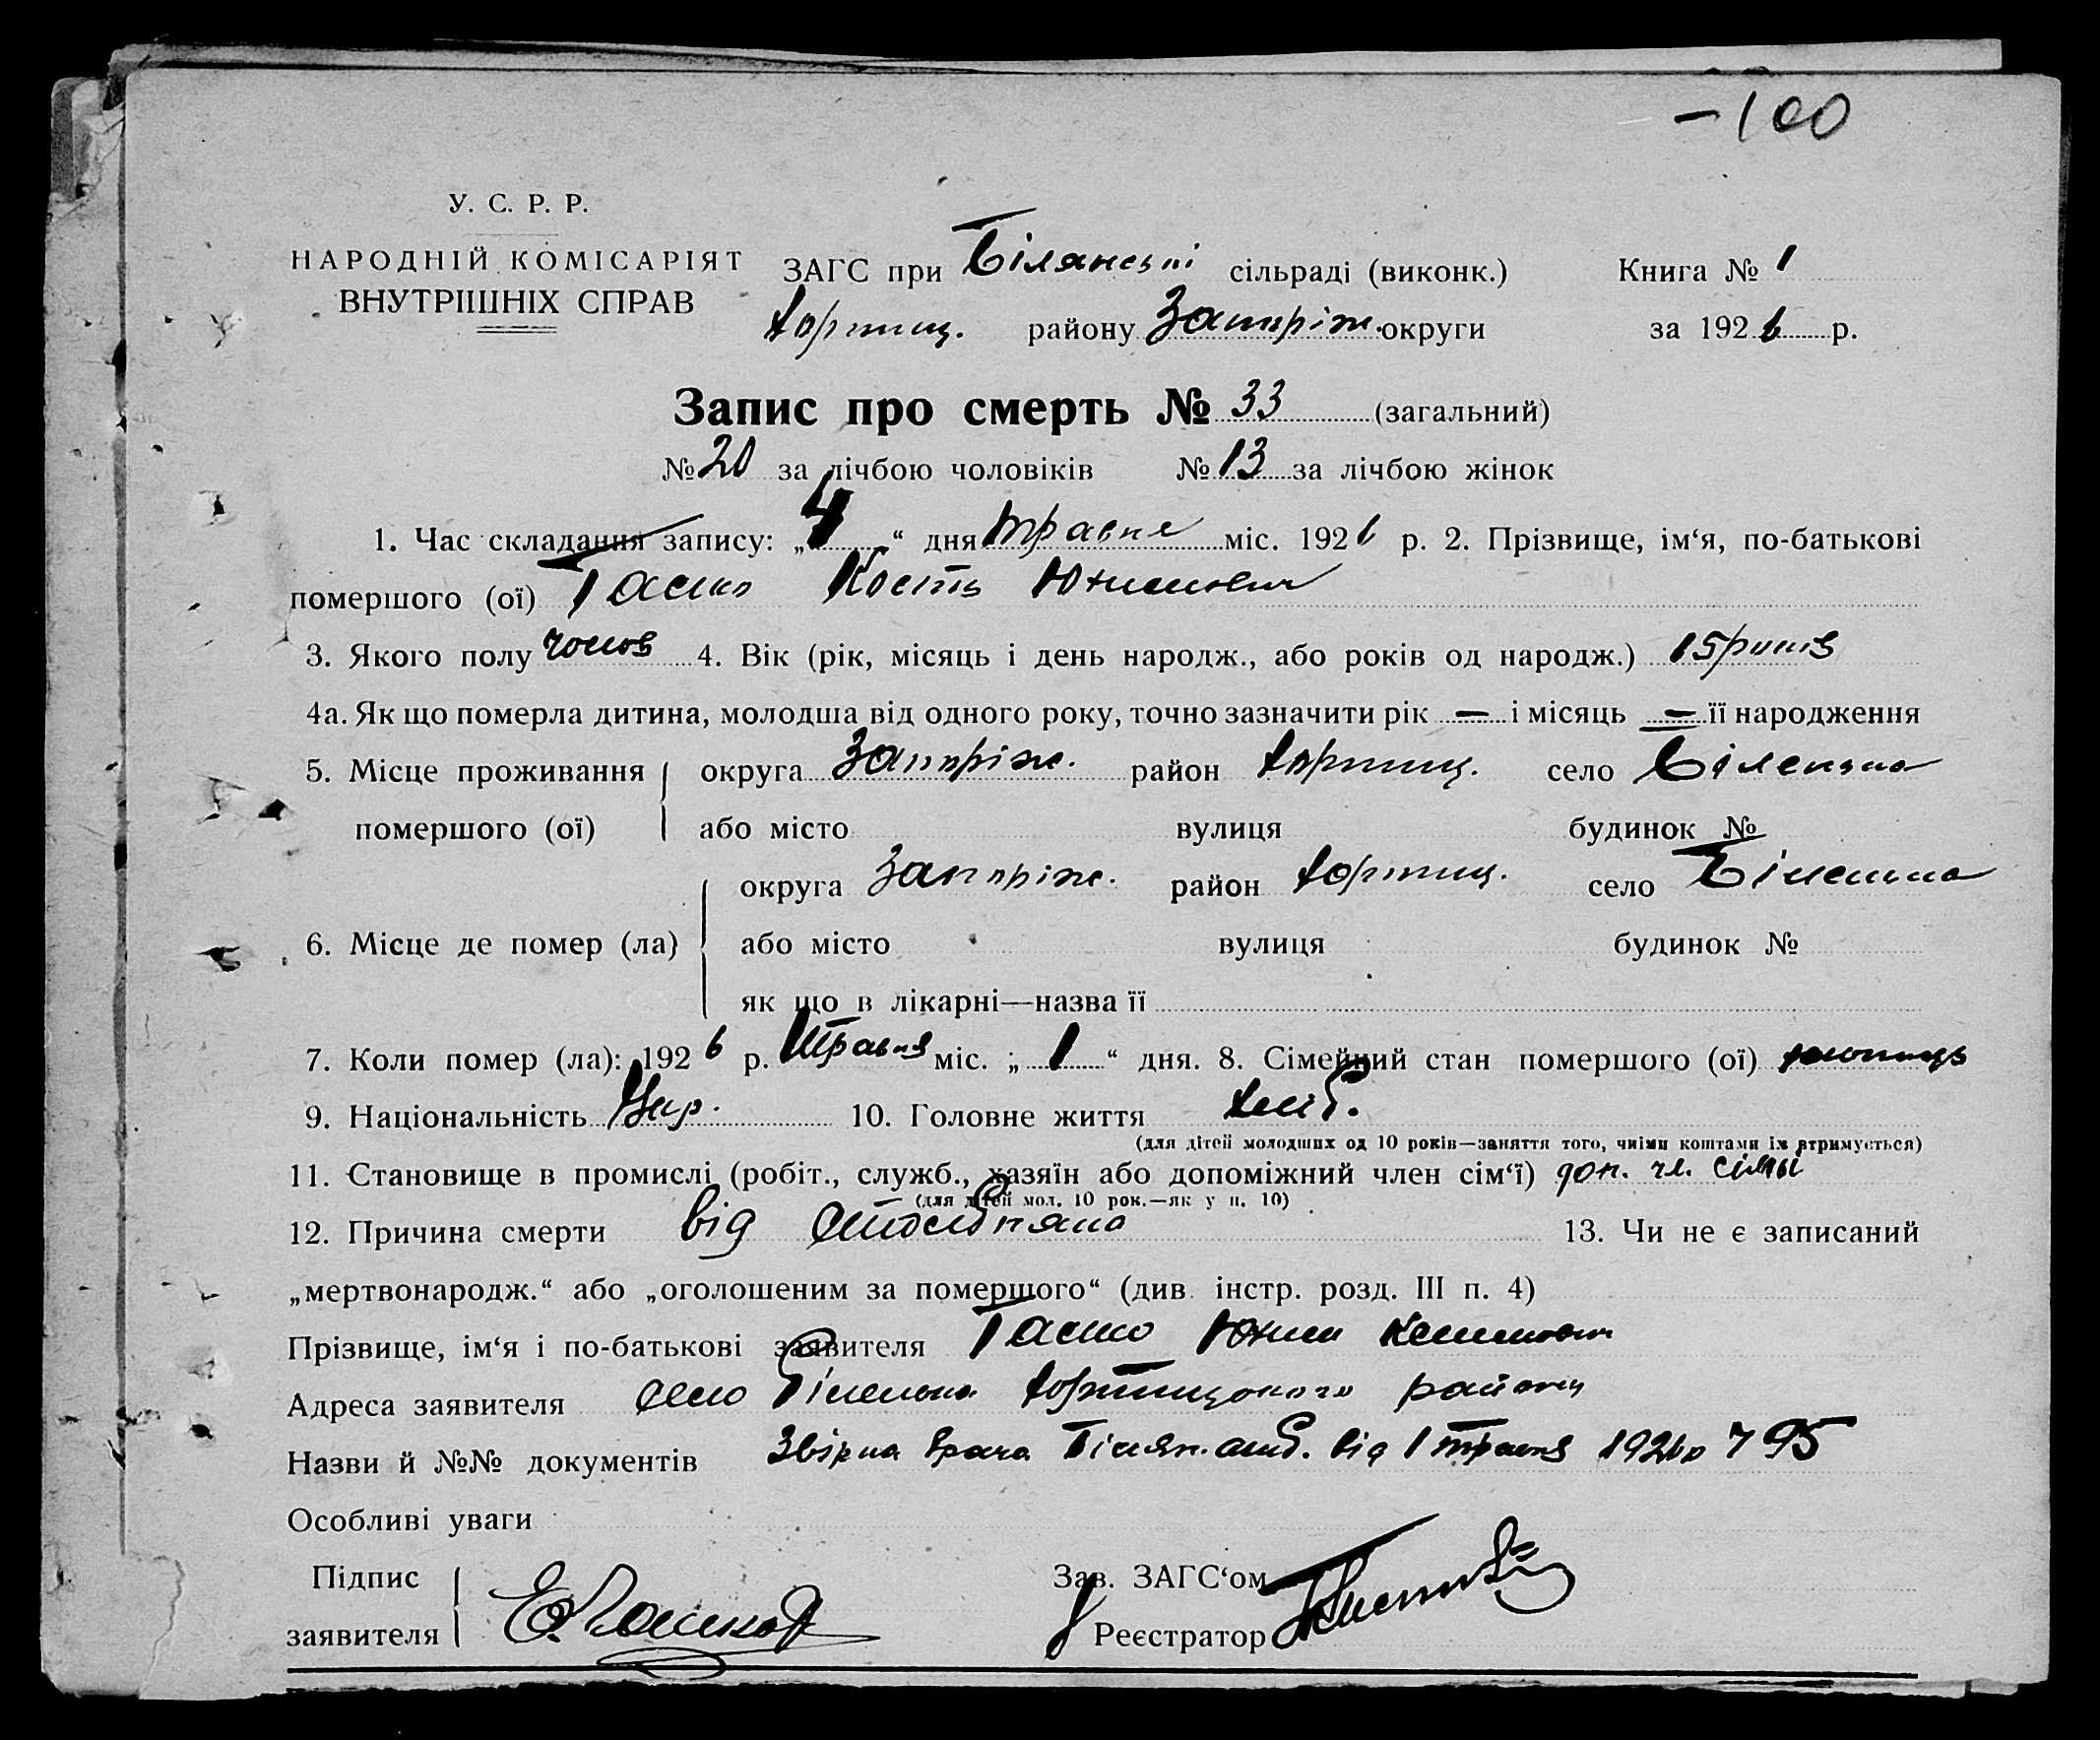 -100
У. С. Р. Р.
НАРОДНІЙ КОМІСАРІЯТ
ВНУТРІШНІХ СПРАВ
ЗАГС при Білянські сільраді (виконк.) Книга № 1
Хортиц. району Запоріж. округи за 1926 р.
Запис про смерть № 33 (загальний)
№ 20 за лічбою чоловіків № 13 за лічбою жінок
1. Час складання запису: „4“ дня травня міс. 1926 р. 2. Прізвище, ім‘я, по-батькові
помершого (ої) Кость
3. Якого полу чолов 4. Вік (рік, місяць і день народж., або років од народж.) 15 років
4а. Як що померла дитина, молодша від одного року, точно зазначити рік — і місяць — її народження
5. Місце проживання округа Запоріж. район Хортиц. село Біленька
помершого (ої) або місто вулиця будинок №
округа Запоріж. район Хортиц. село Біленька
6. Місце де помер (ла) або місто вулиця будинок №
як що в лікарні—назва її
7. Коли помер (ла): 1926 р. Травня міс. „1“ дня. 8. Сімейний стан помершого (ої)
9. Національність Укр. 10. Головне життя хліб.
(для дітей молодших од 10 років—заняття того, чиїми коштами їх втримується)
11. Становище в промислі (робіт., служб., хазяїн або допоміжний член сім‘ї) доп. чл. сімьї
(для дітей мол. 10 рок.—як у п. 10)
12. Причина смерти від 13. Чи не є записаний
„мертвонародж.“ або „оголошеним за помершого“ (див. інстр. розд. III п. 4)
Прізвище, ім‘я і по-батькові заявителя
Адреса заявителя село Біленька Хортицького району
Назви й №№ документів врача Білян. амб. від 1 травня 1926 р 795
Особливі уваги
Підпис
заявителя
Зав. ЗАГС‘ом
Реєстратор